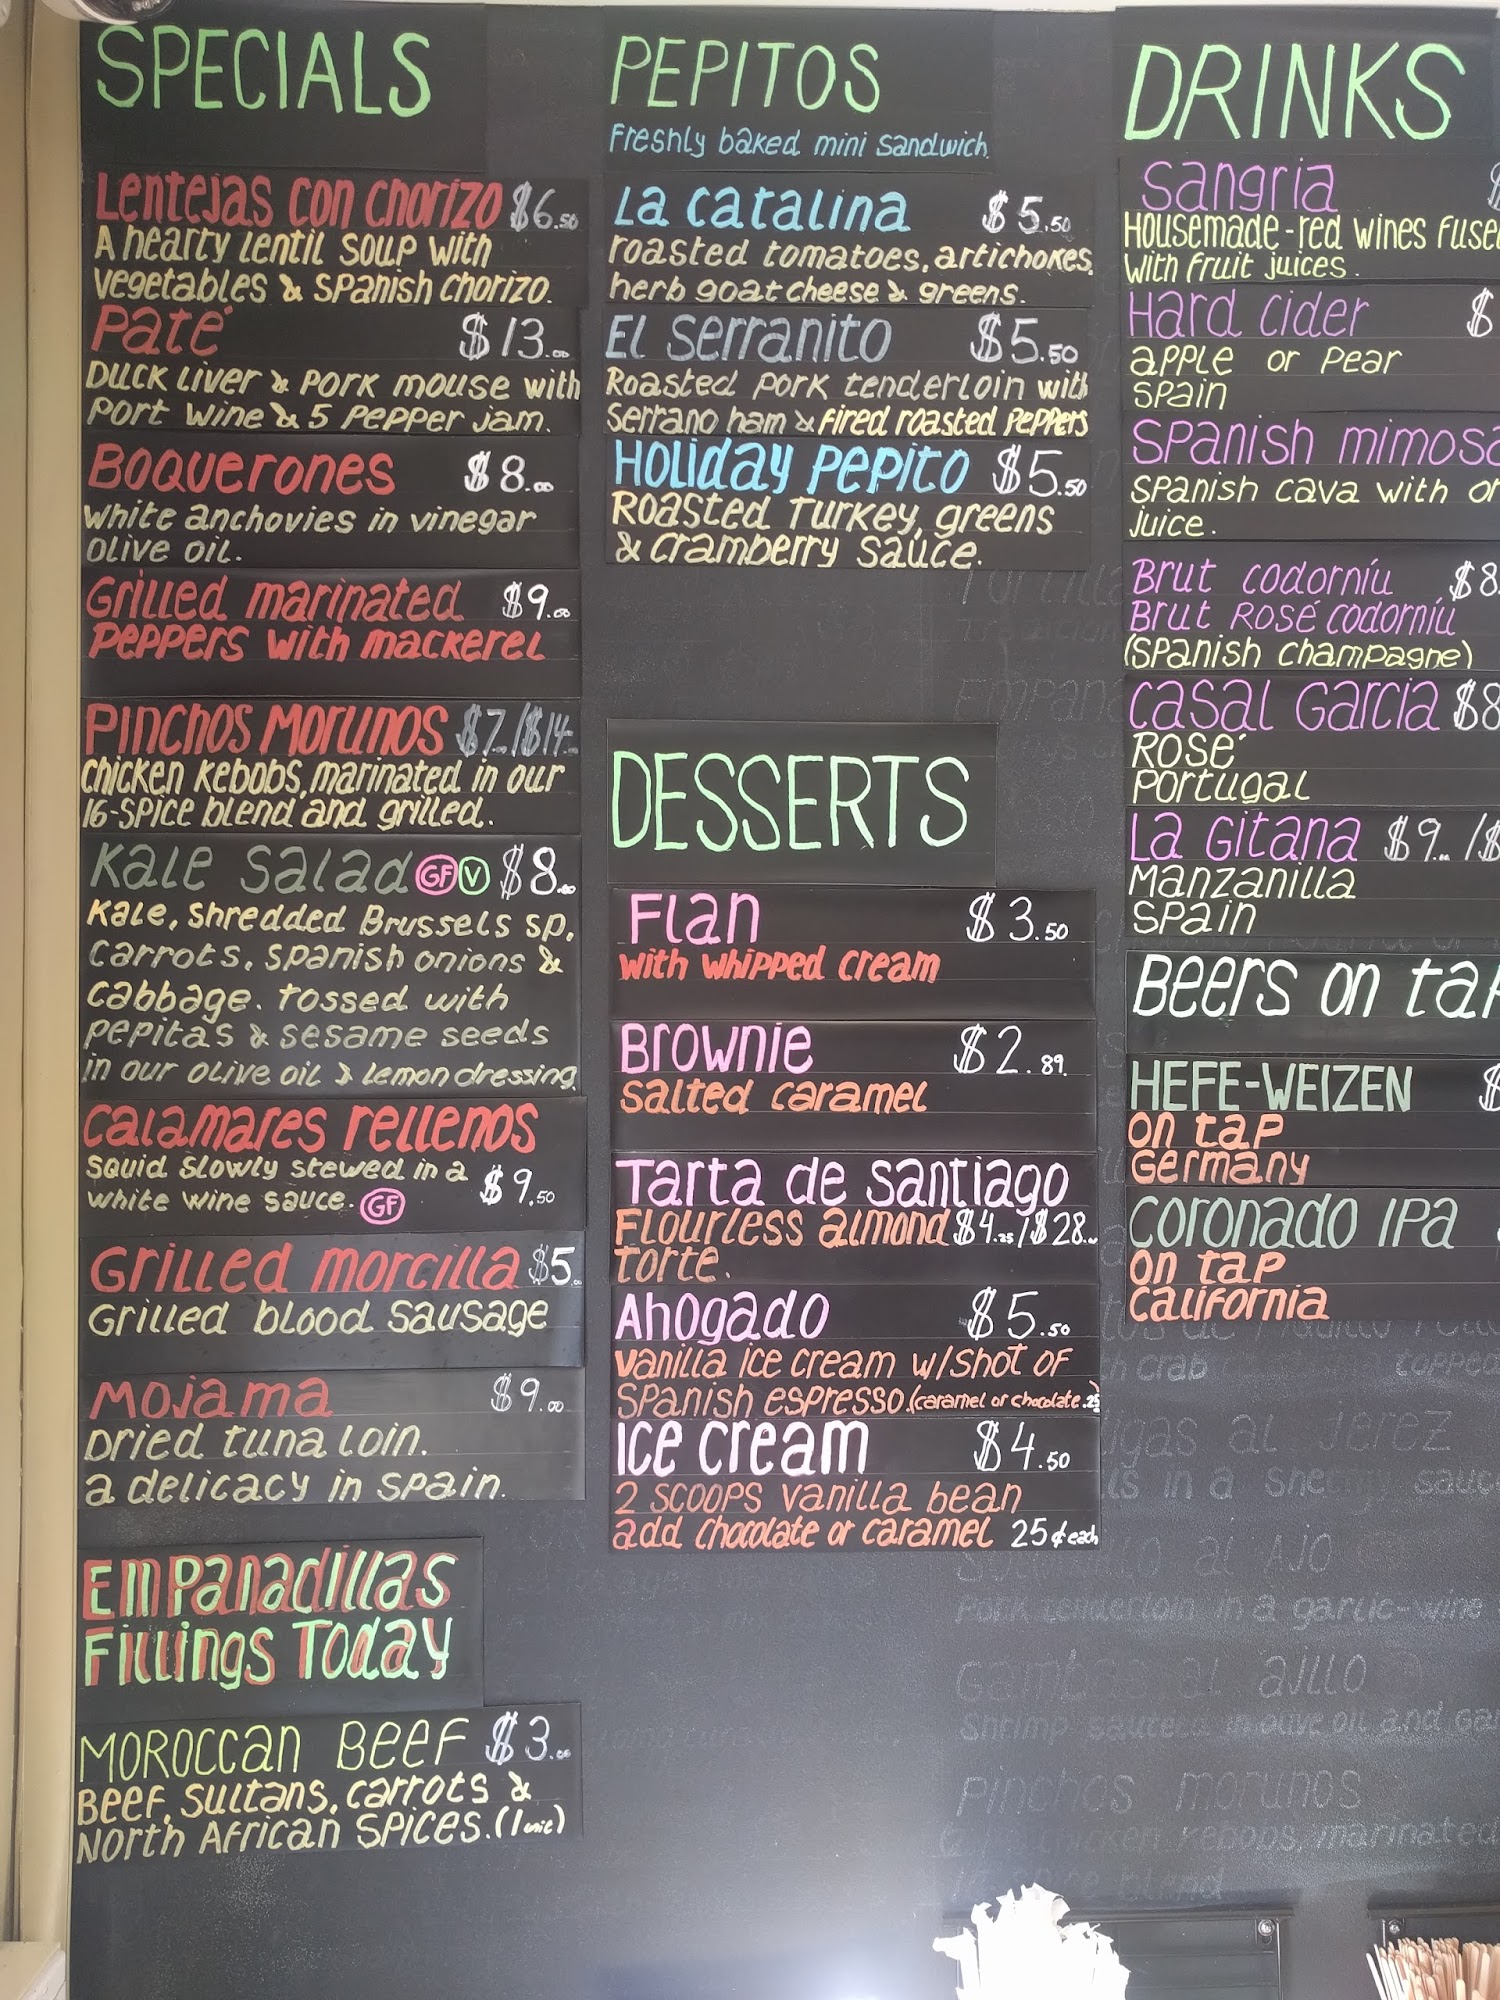 SPECIALS
Lentejas con chorizo $6.50
A hearty lentil soup with
vegetables & spanish chorizo.
Paté $13.00
Duck liver & pork mouse with
port wine & 5 pepper jam.
Boquerones $8.00
white anchovies in vinegar
olive oil.
Grilled marinated $9.00
peppers with mackerel
Pinchos Morunos $7.00/$14.00
chicken kebobs, marinated in our
16-spice blend and grilled.
Kale Salad GF V $8.00
Kale, shredded Brussels sp,
carrots, spanish onions &
cabbage. tossed with
pepitas & sesame seeds
in our olive oil & lemon dressing
Calamares rellenos
squid slowly stewed in a
white wine sauce. GF $9.50
Grilled morcilla $5.00
Grilled blood sausage
Mojama $9.00
Dried tuna loin.
a delicacy in spain.
Empanadillas
Fillings Today
Moroccan Beef $3.00
Beef, sultans, carrots &
North African spices. (1 unit)
PEPITOS
Freshly baked mini sandwich
La Catalina $5.50
roasted tomatoes, artichokes,
herb goat cheese & greens.
El Serranito $5.50
Roasted pork tenderloin with
serrano ham & fired roasted peppers
Holiday pepito $5.50
Roasted Turkey, greens
& cramberry sauce.
DESSERTS
Flan $3.50
with whipped cream
Brownie $2.89
salted caramel
Tarta de santiago
Flourless almond $4.25/$28.00
torte.
Ahogado $5.50
vanilla ice cream w/shot of
spanish espresso. (caramel or chocolate .25)
Ice cream $4.50
2 scoops vanilla bean
add chocolate or caramel 25¢ each
DRINKS
Sangria $
Housemade-red wines fuse
with fruit juices.
Hard cider $
apple or pear
spain
Spanish mimosa
spanish cava with or
juice.
Brut codorníu $8.
Brut Rosé codorníu
(spanish champagne)
Casal Garcia $8
Rosé
Portugal
La Gitana $9.00/$
Manzanilla
spain
Beers on tap
HEFE-WEIZEN $
on tap
Germany
Coronado IPA
on tap
California
topped
al Jerez
in a sherry sauce
al AJO
Pork tenderloin in a garlic-wine
Gambas al ajillo
shrimp sauteed in olive oil and gar
Pinchos morunos
kebobs, marinated
spice blend